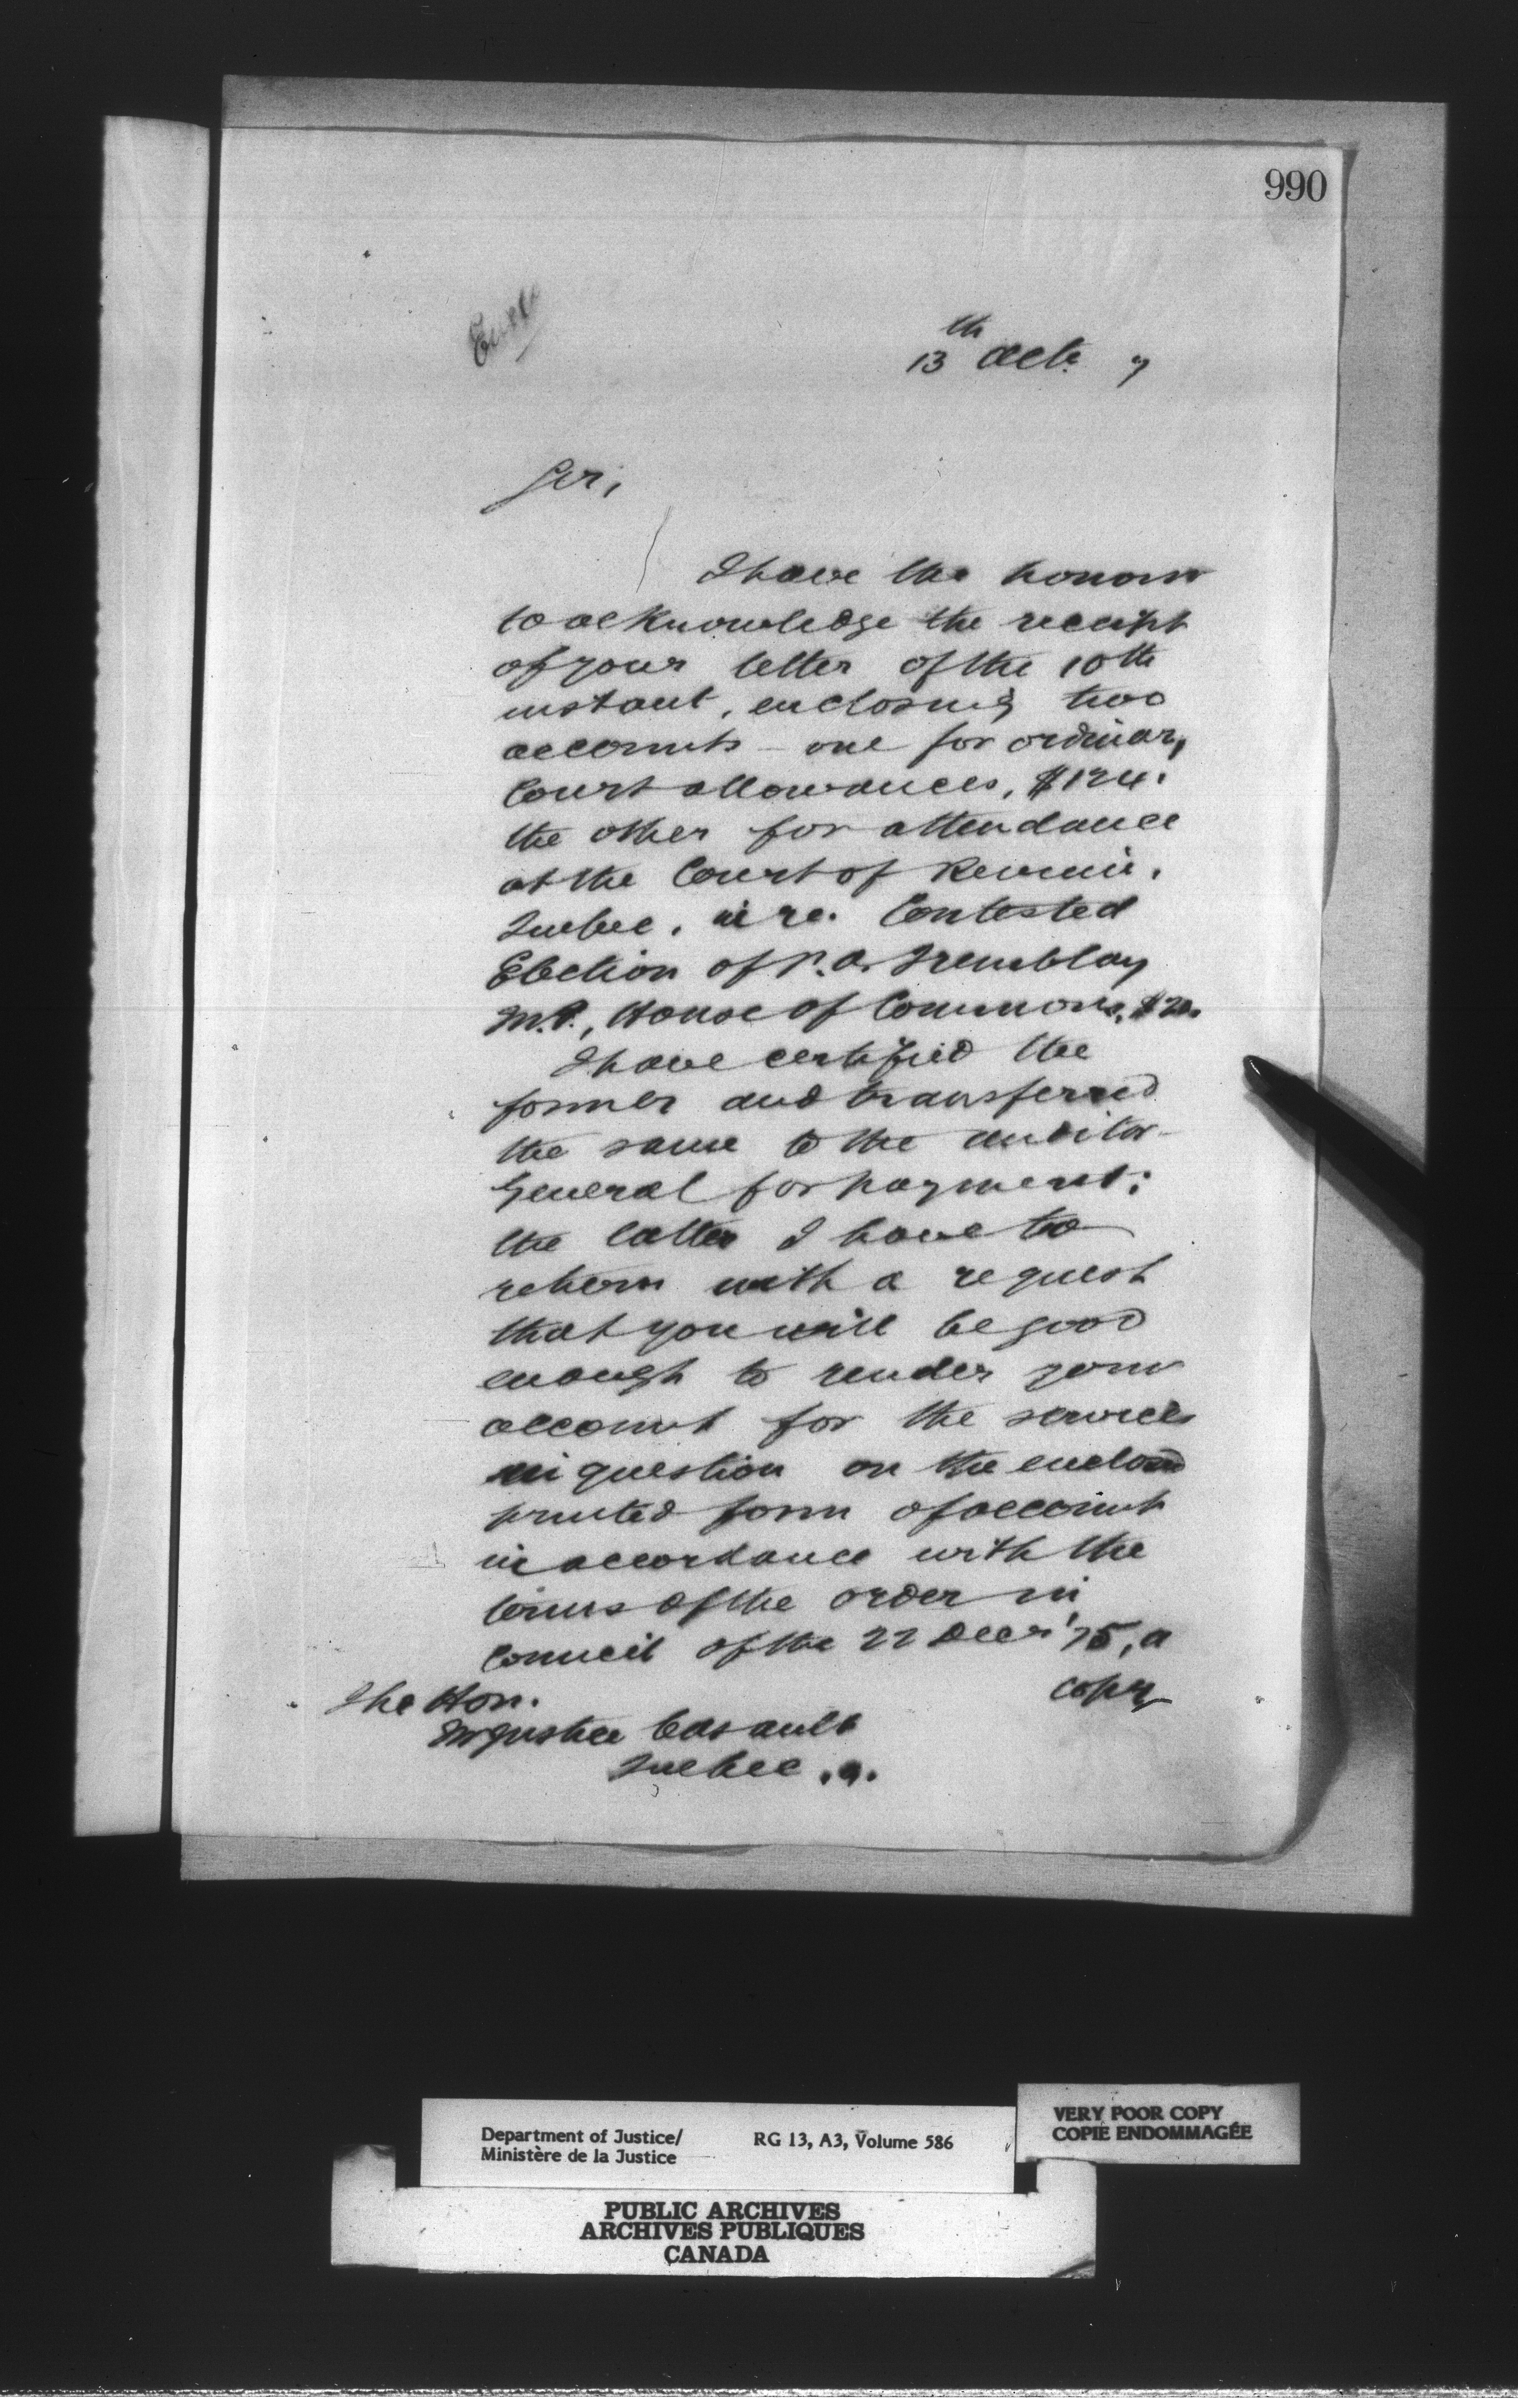 990
13th Octr. 7
Sir,
I have the honour
to acknowledge the receipt
of your letter of the 10th
instant, enclosing two
accounts - one for ordinary
Court allowances, $124.
the other for attendance
at the Court of Review,
Quebec, in re. Contested
Election of P. A. Tremblay
M.P., House of Commons, $20.
I have certified the
former and transferred
the same to the Auditor-
General for payment;
the latter I have to
return with a request
that you will be good
enough to render your
account for the services
in question on the enclosed
printed form of account
in accordance with the
terms of the order in
Council of the 22 Decr '75, a
copy
The Hon.
Mr Justice Casault
Quebec. Q.
Department of Justice/
Ministère de la Justice
RG 13, A3, Volume 586
VERY POOR COPY
COPIE ENDOMMAGÉE
PUBLIC ARCHIVES
ARCHIVES PUBLIQUES
CANADA